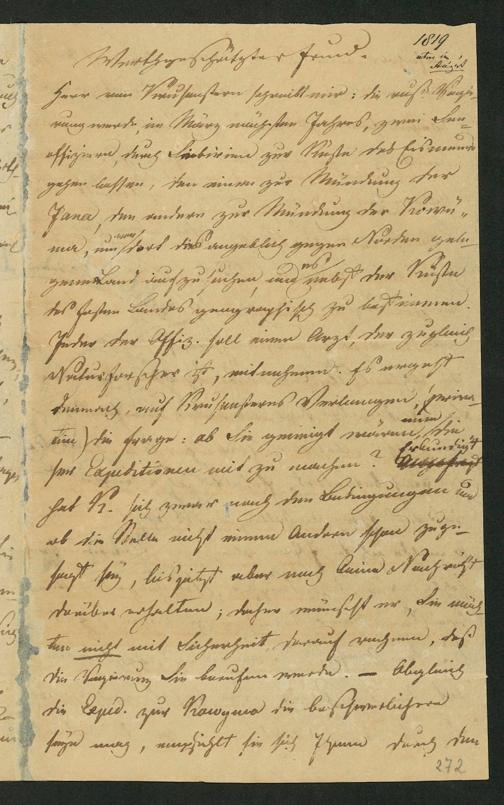 1819
Werthgeschätzter Freund.
Herr von Krusenstern schreibt mir: die russ. Regie-
rung werde, im März nächsten Jahres, zwei See-
offiziere durch Siebirien zur Küste des Eismeeres
gehen lassen, den einen zur Mündung der
Jana, den andern zur Mündung der Kowü-
ma, um von dort das angeblich gegen Norden gele-
gene Land aufzusuchen, und es nebst der Küste
des festen Landes geographisch zu bestimmen.
Jeder der Offiz. soll einen Arzt, der zugleich
Naturforscher ist, mitnehmen. Es ergeht
demnach, auf Krusensterns Verlangen, (
) die Frage: ob Sie geneigt wären, eine die-
ser Expeditionen mit zu machen? Erkundigt
hat K. sich zwar nach den Bedingungen und
ob die Stelle nicht einem Andern schon zuge-
sagt sey, bis jetzt aber noch keine Nachricht
darüber erhalten; daher wünscht er, Sie möch-
ten nicht mit Sicherheit darauf rechnen, daß
die Regierung Sie berufen werde. — Obgleich
die Exped. zur Kowyma die beschwerlichere
seyn mag, empfiehlt sie sich Ihnen durch den
272